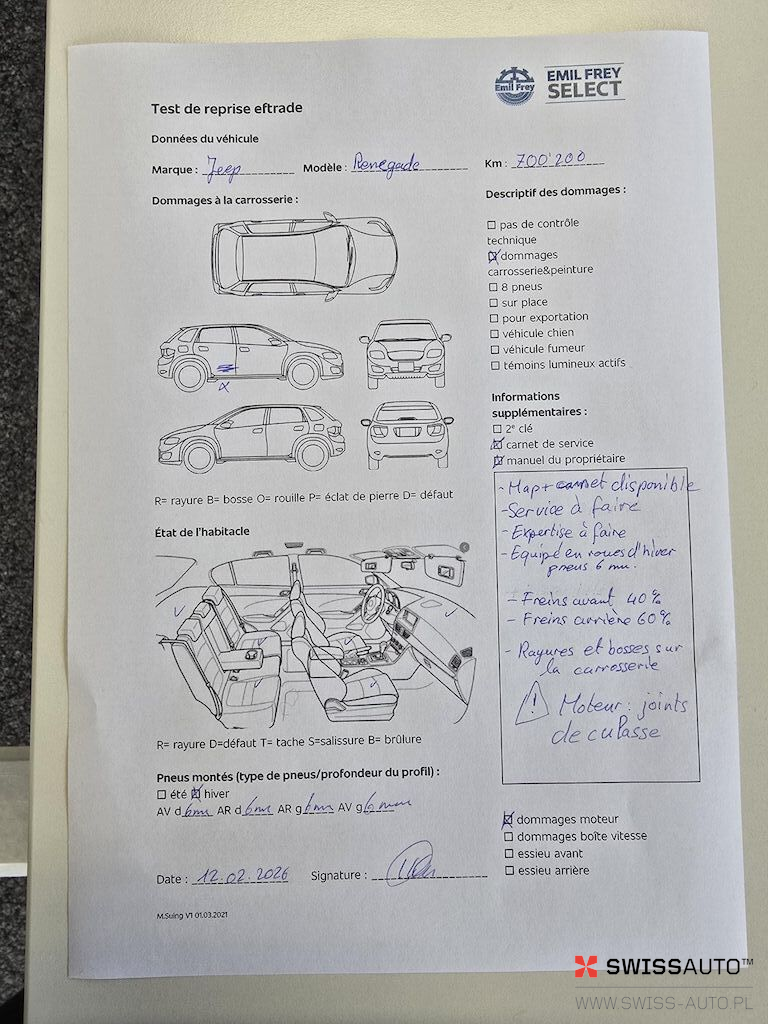 Emil Frey
EMIL FREY
SELECT
Test de reprise eftrade
Données du véhicule
Marque : Jeep Modèle : Renegade Km : 700'200
Dommages à la carrosserie :
Descriptif des dommages :
☐ pas de contrôle
technique
☒ dommages
carrosserie&peinture
☐ 8 pneus
☐ sur place
☐ pour exportation
☐ véhicule chien
☐ véhicule fumeur
☐ témoins lumineux actifs
X
R= rayure B= bosse O= rouille P= éclat de pierre D= défaut
Informations
supplémentaires :
☐ 2e clé
☒ carnet de service
☒ manuel du propriétaire
- Map + carnet disponible
- Service à faire
- Expertise à faire
- Equipé en roues d'hiver
pneus 6 mm.
- Freins avant 40%
- Freins arrière 60%
- Rayures et bosses sur
la carrosserie
! Moteur : joints
de culasse
État de l'habitacle
R= rayure D=défaut T= tache S=salissure B= brûlure
Pneus montés (type de pneus/profondeur du profil) :
☐ été ☒ hiver
AV d 6mm AR d 6mm AR g 6mm AV g 6mm
☒ dommages moteur
☐ dommages boîte vitesse
☐ essieu avant
☐ essieu arrière
Date : 12.02.2026 Signature :
M.Suing V1 01.03.2021
SWISSAUTO™
WWW.SWISS-AUTO.PL